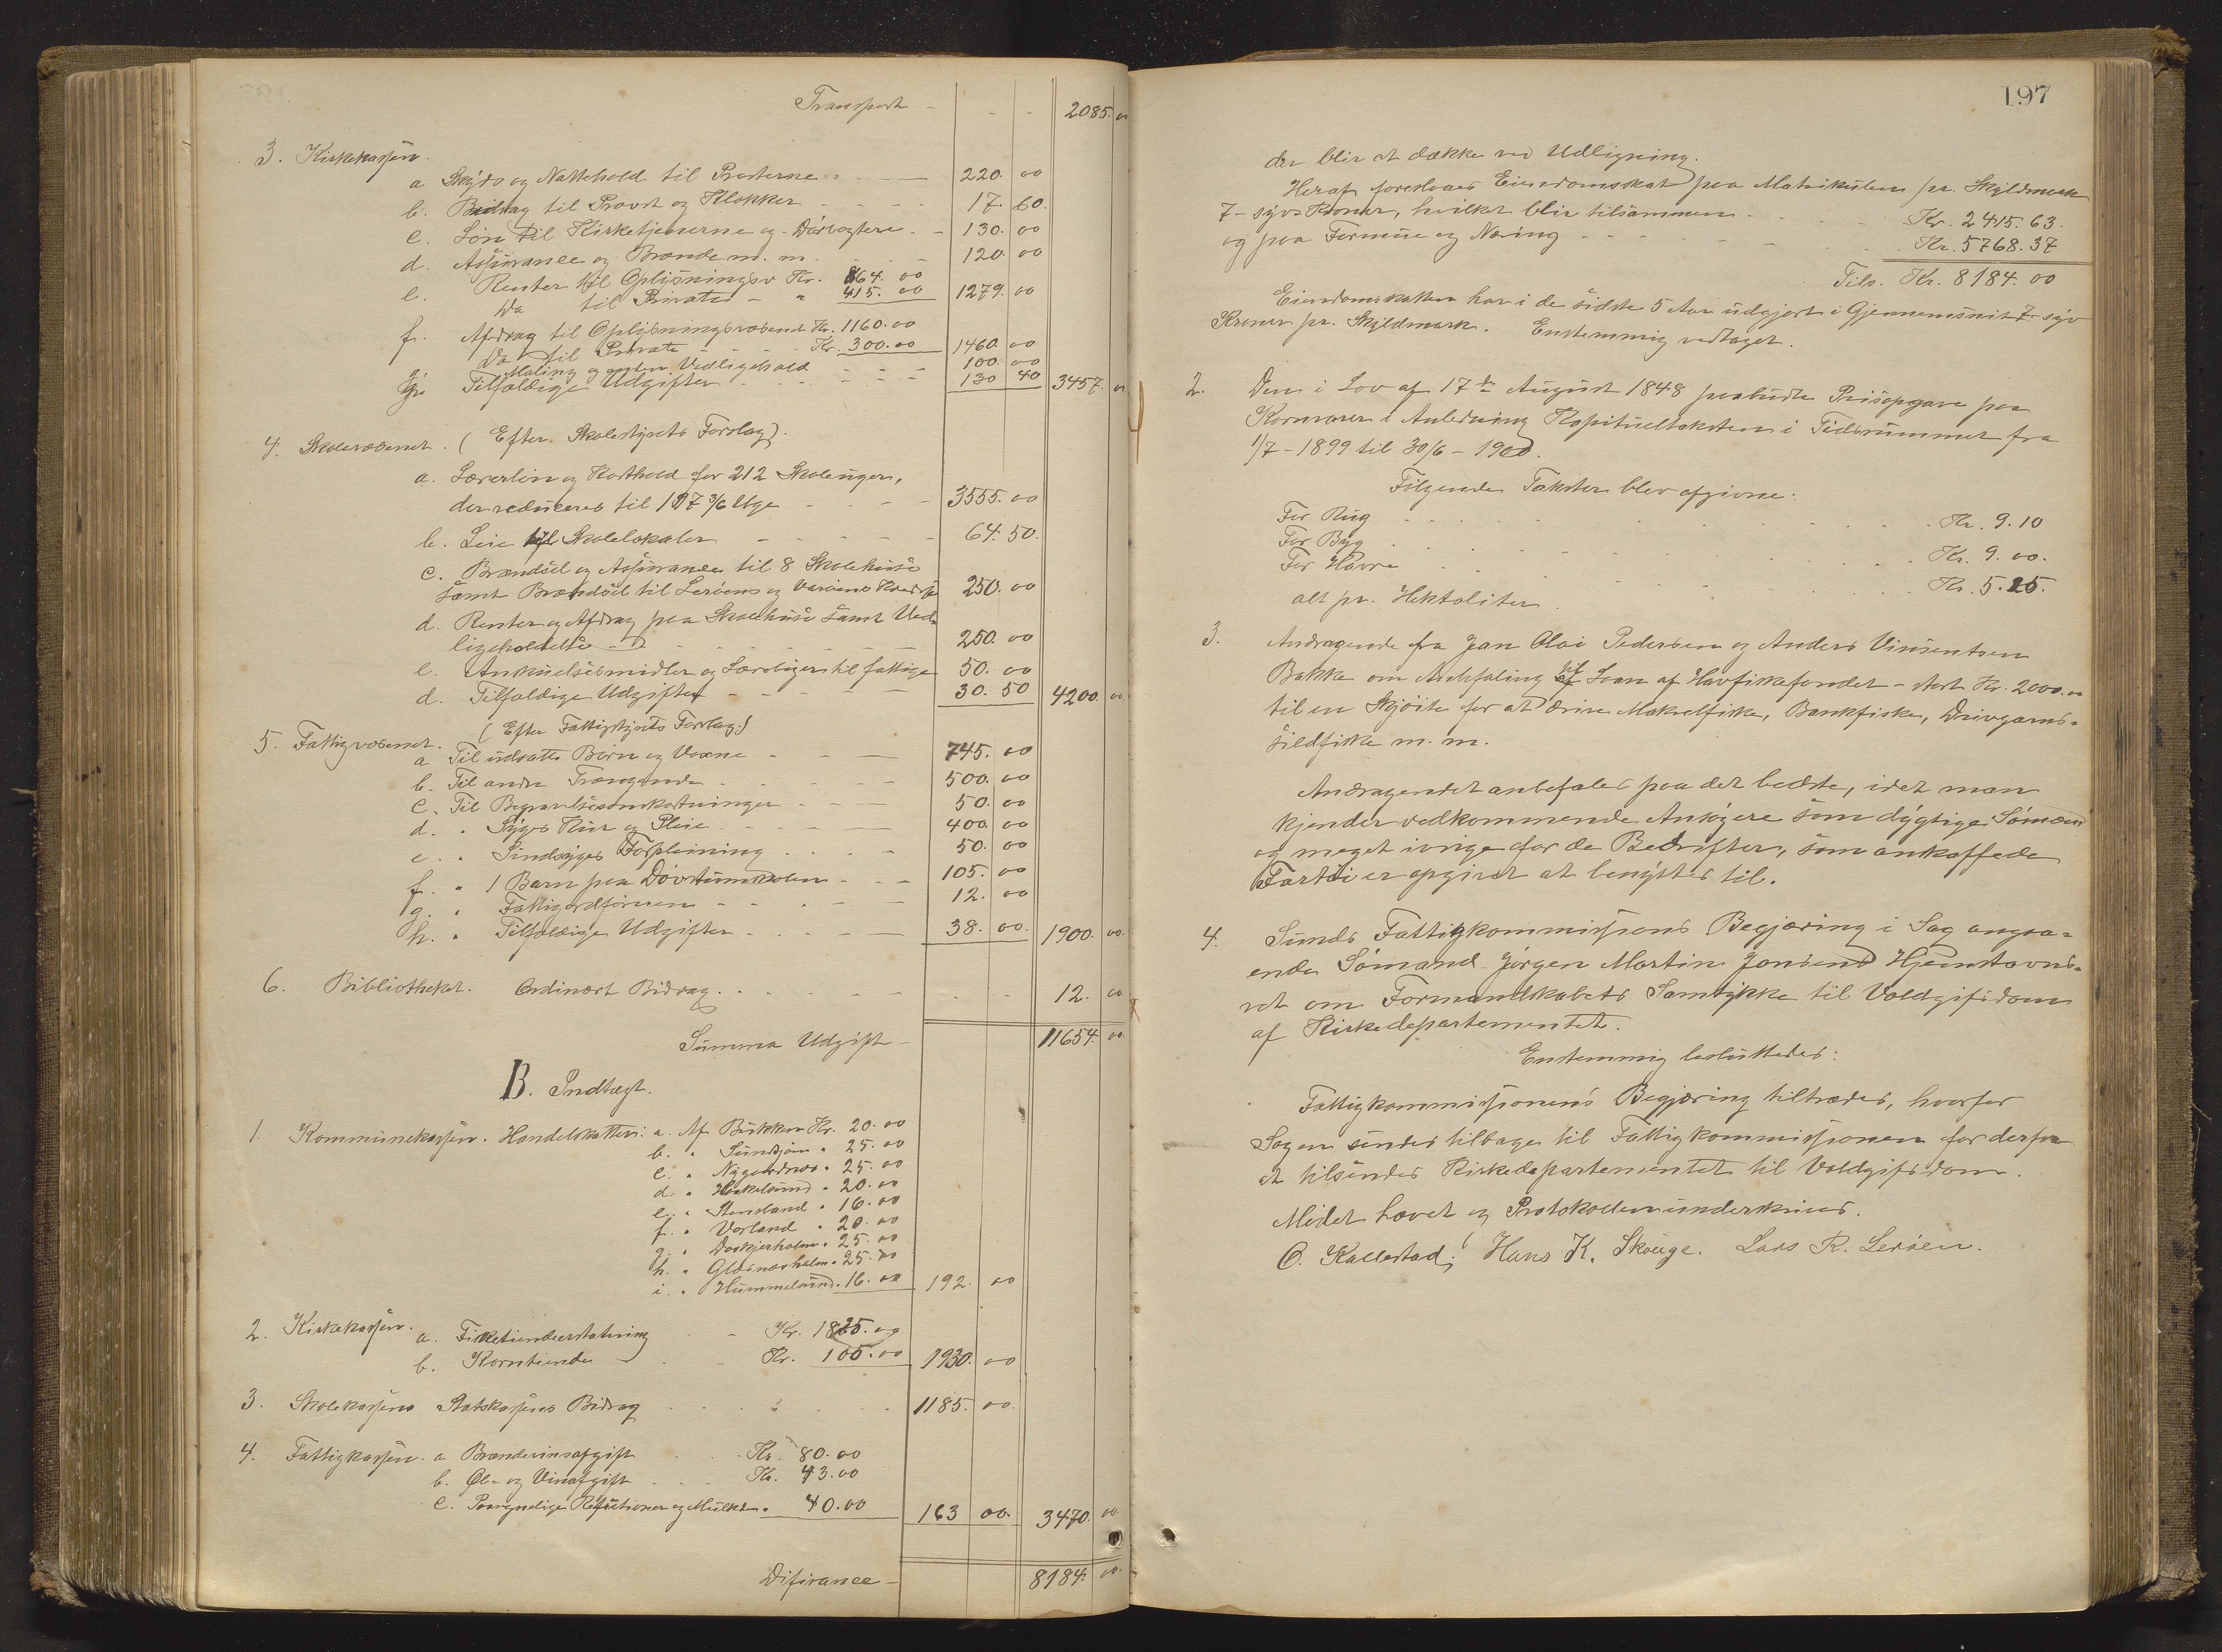 Transport - - - 2085. 00
3. Kirkekassen.
a Skyds og Nattehold til Presterne - 220. 00
b. Bidrag til Provst og Klokker - - - 17. 60.
c. Løn til Kirketjenerne og Dørvogtere - - 130. 00
d. Assurance og Brænde m. m. - - 120. 00
e. Renter til Oplysningsv Kr. 864. 00
Do til Private - " 415. 00 1279. 00
f. Afdrag til Oplysningsvæsenet Kr. 1160. 00
Do til Private - - Kr. 300. 00 1460. 00
g. Maling og anden Vedligehold - - - 100. 00
Tilfældige Udgifter - - - 130 40 3457. 00
4. Skolevæsenet. (Efter Skolestyrets Forslag).
a. Lærerløn og Kosthold for 212 Skoleuger,
der reduceres til 197 3/6 Uge - - - 3555. 00
b. Leie til Skolelokaler - - - - 64. 50.
c. Brændsel og Assurance til 8 Skolehuse
samt Brændsel til Lerøens og Varøens Kredse 250. 00
d. Renter og Afdrag paa Skolehuse samt Ved-
ligeholdelse - - - - 250. 00
e. Anskuelsesmidler og Lærebøger til fattige 50. 00
d. Tilfældige Udgifter - - - - 30. 50 4200. 00.
5. Fattigvæsenet. (Efter Fattigstyrets Forslag)
a Til udsatte Børn og Voxne - - - 745. 00
b. Til andre Trængende - - - - 500. 00
c. Til Begravelsesomkostninger - - - 50. 00
d. " Syges Kur og Pleie - - - - 400. 00
e. " Sindsyges Forpleining - - - 50. 00
f. " 1 Barn paa Døvstumskolen - - - 105. 00
g. " Fattigordføreren - - - - 12. 00
h. " Tilfældige Udgifter - - - - 38. 00. 1900. 00.
6. Bibliotheket. Ordinært Bidrag. - - - - 12. 00
Summa Udgift - 11654. 00.
B. Indtægt.
1. Kommunekassen. Handelsskatten: a. Af Bukken Kr. 20. 00
b. " Sundøjen " 25. 00
c. " Nygardsvæ " 25. 00
d. " Hiskelsund " 20. 00
e. " Stensland " 16. 00
f. " Vorland " 20. 00
g. " Doskjerholm " 25. 00
h. " Glesnæsholm " 25. 00
i. " Hummelsund " 16. 00 192. 00
2. Kirkekassen. a. Fisketiendeerstatning - Kr. 1825. 00
b. Korntiende - - Kr. 105. 00 1930. 00
3. Skolekassens Statskassens Bidrag - - - - 1185. 00.
4. Fattigkassen. a Brændevinsafgift - - Kr. 80. 00
b. Øl- og Vinafgift - - Kr. 43. 00
c. Paaregnelige Refusioner og Mulkter " 40. 00 163 00. 3470. 00.
Diferance - 8184. 00.
197
der blir at dække ved Udligning.
Heraf foreslaaes Eiendomsskat paa Matrikulen pr. Skyldmark
7 - syv Kroner, hvilket blir tilsammen - - - - Kr. 2415. 63.
og paa Formue og Næring - - - - - - Kr. 5768. 37
Tils. Kr. 8184. 00
Eiendomsskatten har i de sidste 5 Aar udgjort i Gjennemsnit 7 - syv
Kroner pr. Skyldmark. Enstemmig vedtaget.
2. Den i Lov af 17de August 1848 paabudte Prisopgave paa
Kornvarer i Anledning Kapitueltaksten i Tidsrummet fra
1/7 - 1899 til 30/6 - 1900.
Følgende Takster blev afgivne:
For Rug - - - - - - Kr. 9. 10
For Byg - - - - - - Kr. 9. 00.
For Havre - - - - - - Kr. 5. 25.
alt pr. Hektoliter.
3. Andragende fra Jan Olai Pedersen og Anders Vinsentsen
Bakke om Anbefaling til Laan af Havfiskefondet - stort Kr. 2000. 00
til en Skjøite for at drive Makrelfiske, Bankfiske, Drivgarns-
sildfiske m. m.
Andragendet anbefales paa det bedste, idet man
kjender vedkommende Ansøgere som dygtige Sømænd
og meget ivrige for de Bedrifter, som anskaffede
Fartøi er opgivet at benyttes til.
4. Sunds Fattigkommissions Begjæring i Sag angaa-
ende Sømand Jørgen Martin Jonsens Hjemstavns-
ret om Formandskabets Samtykke til Voldgiftsdom
af Kirkedepartementet.
Enstemmig besluttedes:
Fattigkommissionens Begjæring tiltrædes, hvorfor
Sagen sendes tilbage til Fattigkommissionen for derfra
at tilsendes Kirkedepartementet til Voldgiftsdom.
Mødet hævet og Protokollen underskrives.
O. Kallestad; Hans K. Skouge. Lars R. Lerøen.